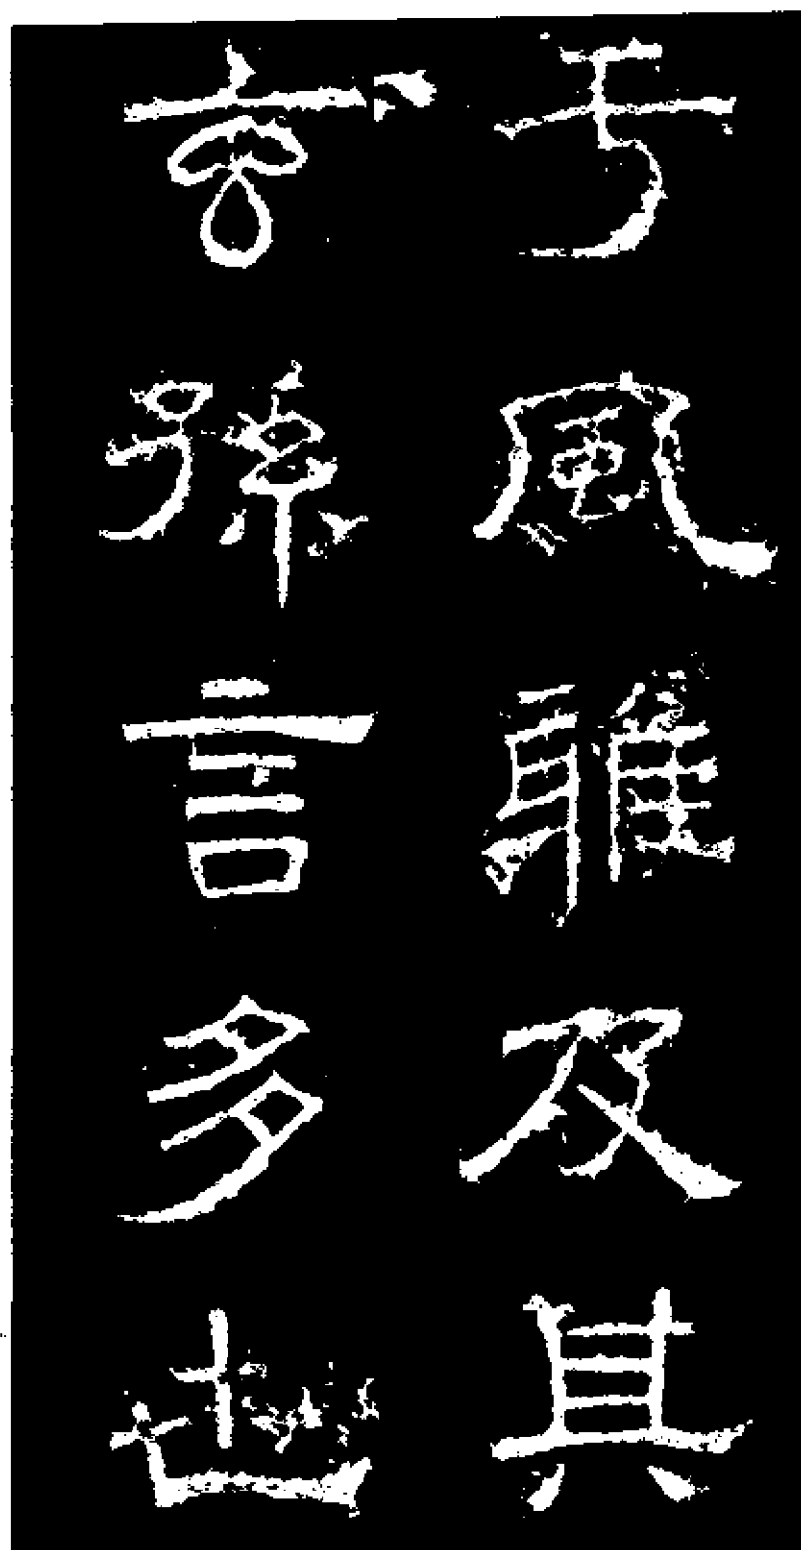 于風雅及其
玄孫言多世